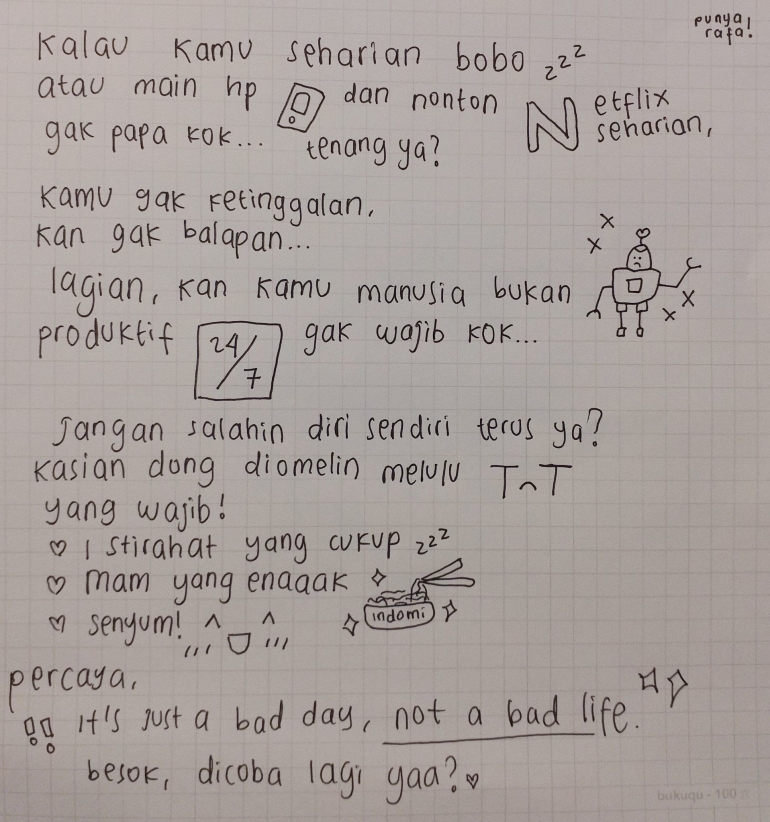 punya
rafa!
kalau kamu seharian bobo zzz
atau main hp dan nonton Netflix
gak papa kok... tenang ya? seharian,
kamu gak ketinggalan,
kan gak balapan...
lagian, kan kamu manusia bukan
produktif 24/7 gak wajib kok...
jangan salahin diri sendiri terus ya?
kasian dong diomelin melulu T^T
yang wajib!
♡ istirahat yang cukup zzz
♡ mam yang enaaak
indomi
♡ senyum!
percaya,
!! it's just a bad day, not a bad life.
besok, dicoba lagi yaa? ♡
bukuqu - 100